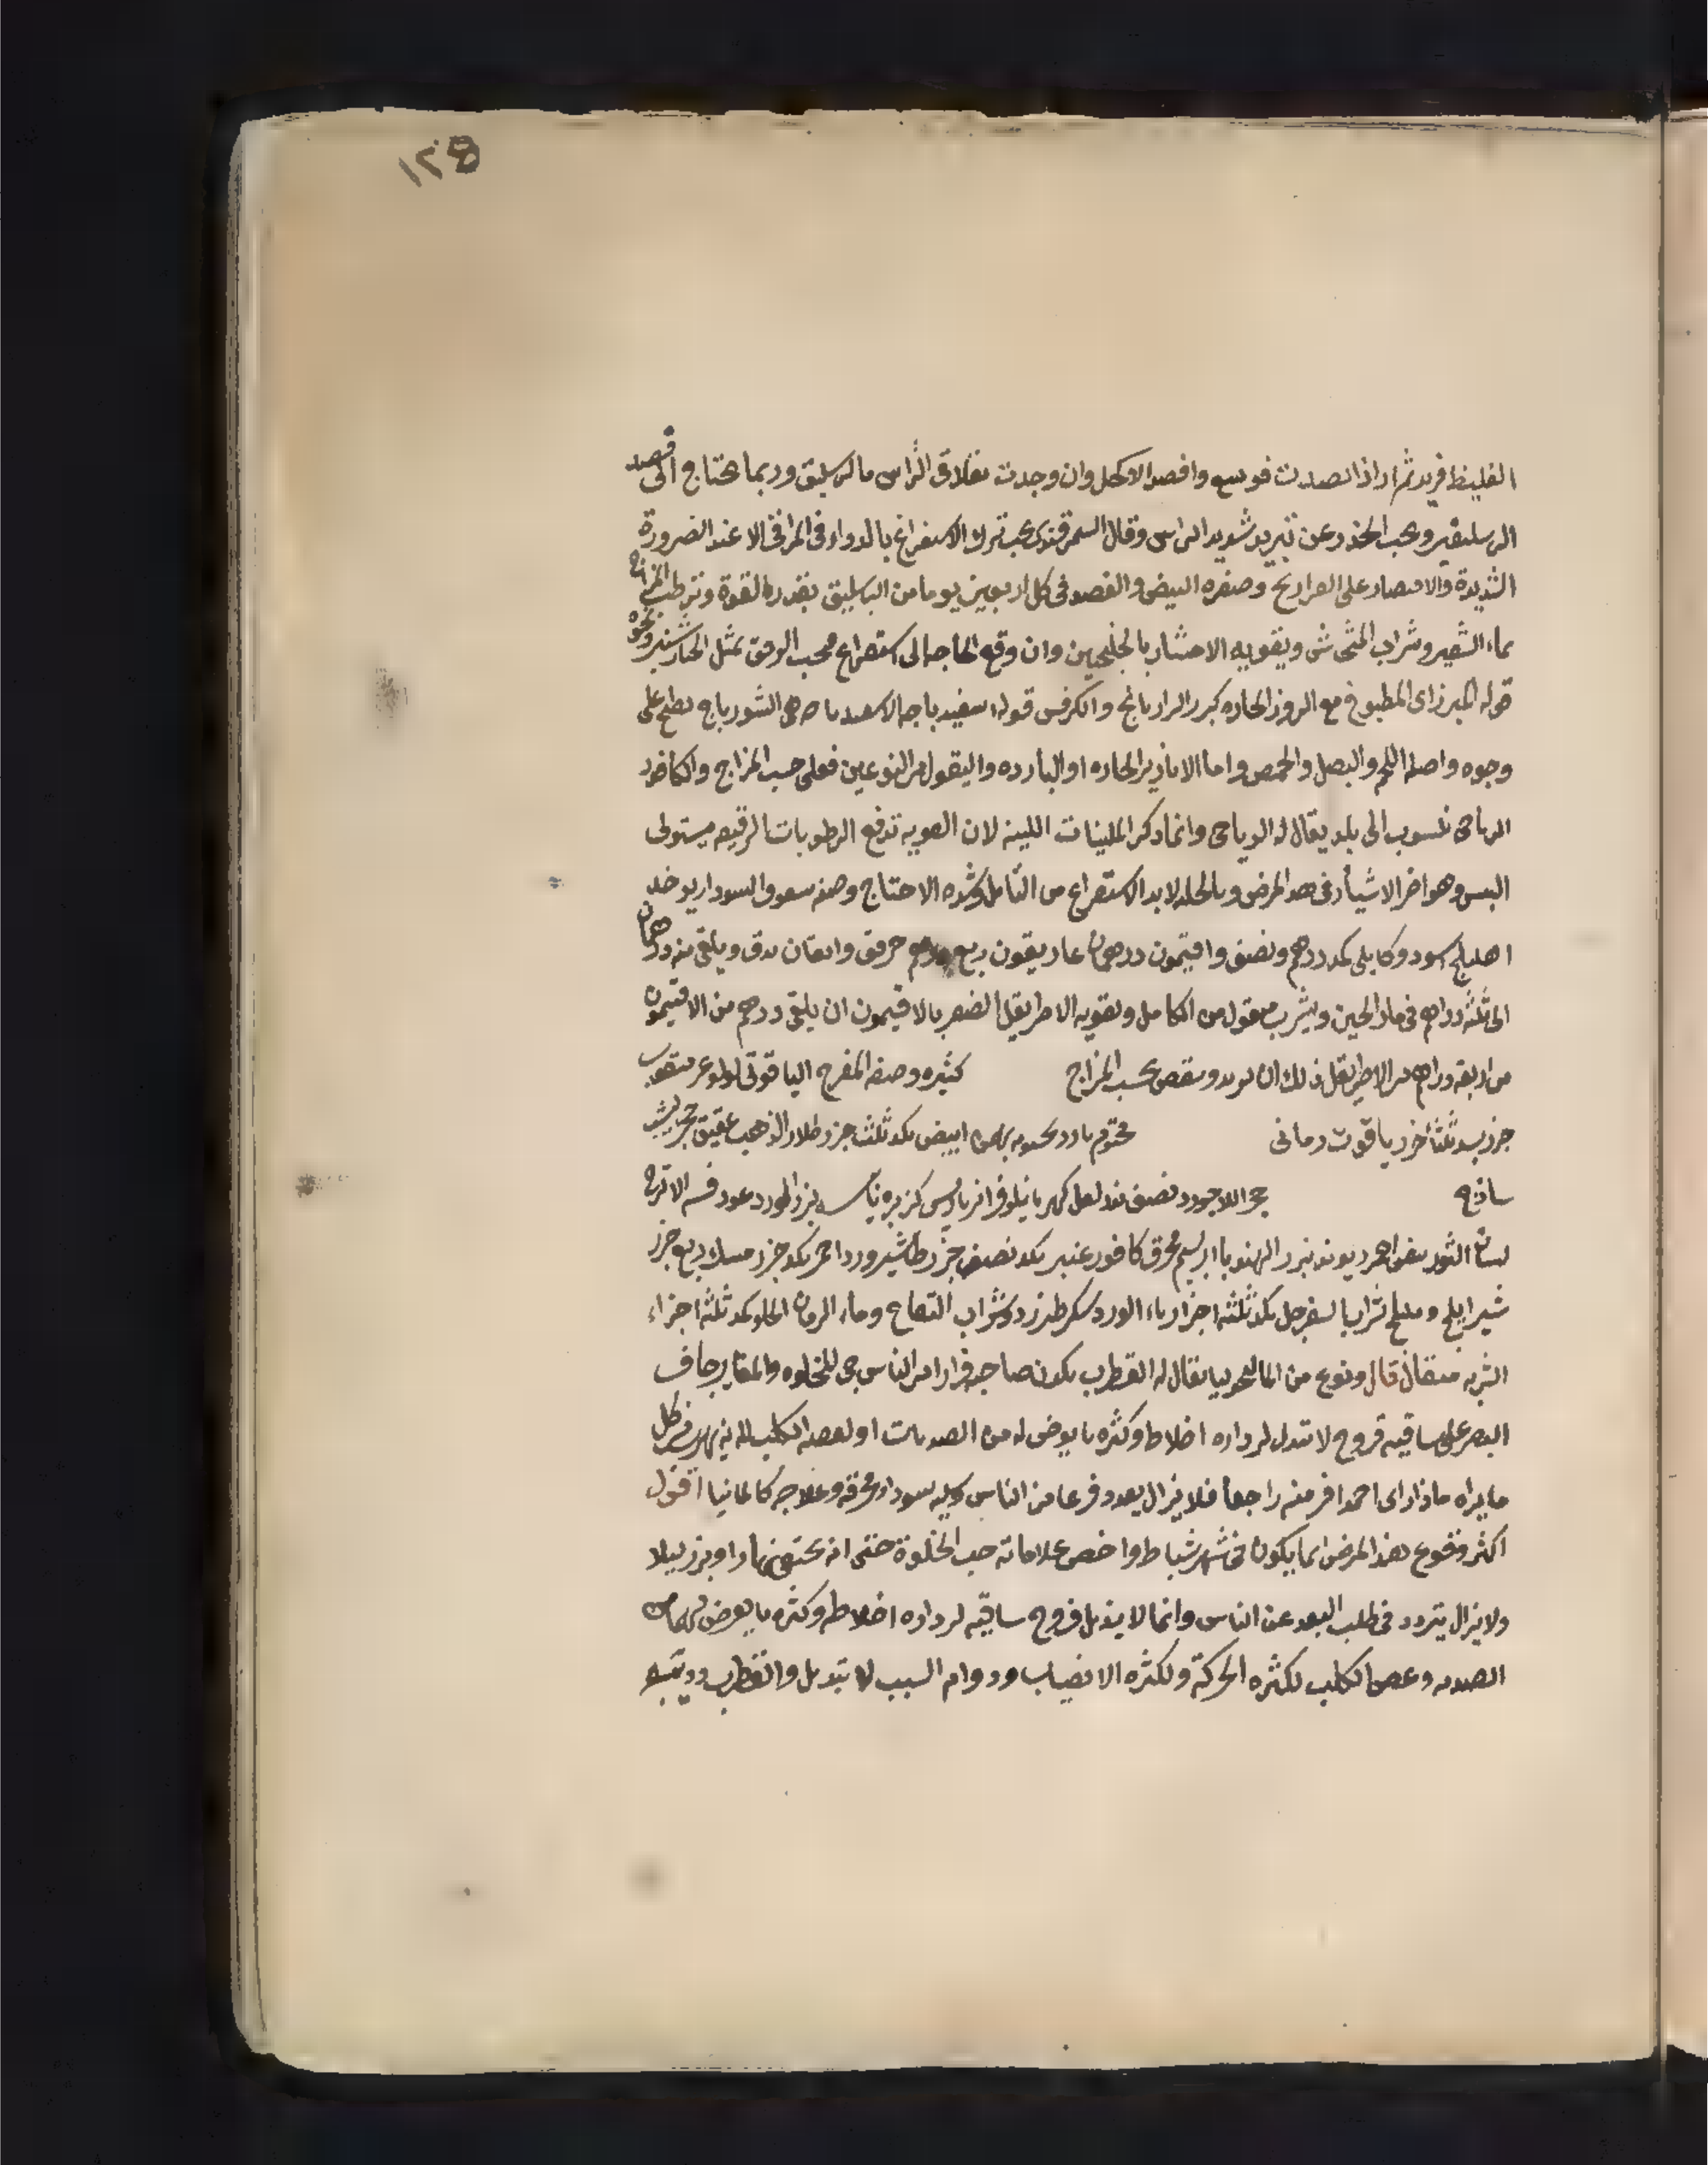 ١٢٥
الغليظ فريد ثم اذا فصدت فوسع وافصد الاكحل وان وجدت ثقلا فى الراس ما لباسليق وربما تحتاج الى فصد
الباسليقين ويجب الحذر عن تبريد شديد الراس وقال السمرقندى يجب ترك الاستفراغ بالدواء فى المراقى الا عند الضرورة
الشديدة والاقتصار على الفراريج وصفره البيض والفصد فى كل اربعين يوما من الباسليق بقدر القوة وترطب المزاج
بماء الشعير وشراب الخشخاش وتقويه الاحشاء بالجلنجبين وان وقع الحاجه الى استفراغ فيجب الرفق بمثل الخيارشنبر ونحوه
قوله المبزر اى المطبوخ مع البزور الحاره كبزر الرازيانج والكرفس قوله اسفيدباجه الاسفيدباجه هى الشورباج يطبخ على
وجوه واصله اللحم والبصل والحمص واما الابازير الحاره او البارده والبقول من النوعين فعلى حسب المزاج والكافور
الرباحى منسوب الى بلد يقال له الرباحى وانما ذكر الملينات اللينه لان القويه تدفع الرطوبات الرقيقه فيستولى
اليبس وهو اضر الاشياء فى هذا المرض وبالجمله لابد الاستفراغ من التامل وشده الاحتياج وصفه سفوف السودا يوخذ
اهليلج اسود وكابلى كمد درهم ونصف وافتيمون درهمان غاريقون ربع درهم خربق وايقان يدق ويلقى منه درهمان
الى ثلثة دراهم فى ماء الجبن ويشرب منقول من الكامل وتقويه الاطريفل الصغير بالافتيمون ان يلقى درهم من الافتيمون
من اربعه دراهم من الاطريفل ذلك ان يريد وينقص بحسب المزاج كثيره وصفه المفرح الياقوتى لولو غير مثقوب
جزء بسد ثلثا جزء ياقوت رمانى مختوم بادرنجبويه بهمن ابيض بكد ثلث جزء طلاء الذهب عقيق حجر يشب
ساذج حجر اللاجورد نصف بند لعل كهربا نيلوفر انبرباريس كزبره يابسه بزر الورد عود قشر الاترج
لسان الثور بنفسج احمر ريوند بزر الهندبا ابريسم محرق كافور عنبر بكد نصف جزء طباشير ورد احمر بكد جزء مسك ربع جزء
شير املج ومملح شراب السفرجل بكد ثلثة اجزاء ماء الورد سكر طبرزد وشراب التفاح وماء الرمان الحلو كمد ثلثة اجزاء
الشربه مثقال قال ونوع من الماليخوليا يقال له القطرب يكون صاحبه فرارا من الناس محبا للخلوه والمقابر جاف
البصر على ساقيه قروح لا تندمل لرداءه اخلاط وكثره ما يعرض له من الصدمات او لعضه الكلاب لانه يهرب من كل
ما يراه ماذا راى احدا فر منه راجعا فلا يزال يعدو فزعا من الناس وسببه سوداء محرقه وعلاجه كالمانيا اقول
اكثر وقوع هذا المرض انما يكون فى شهر شباط واخص علاماته حب الخلوة حتى انه يختفى نهارا ويبرز ليلا
ولا يزال يتردد فى طلب البعد عن الناس وانما لا يندمل قروح ساقيه لرداءه اخلاطه وكثره ما يعرض لهما من
الصدمه وعض الكلب لكثره الحركة ولكثره الانصباب ودوام السبب لا تندمل والقطرب دويبه